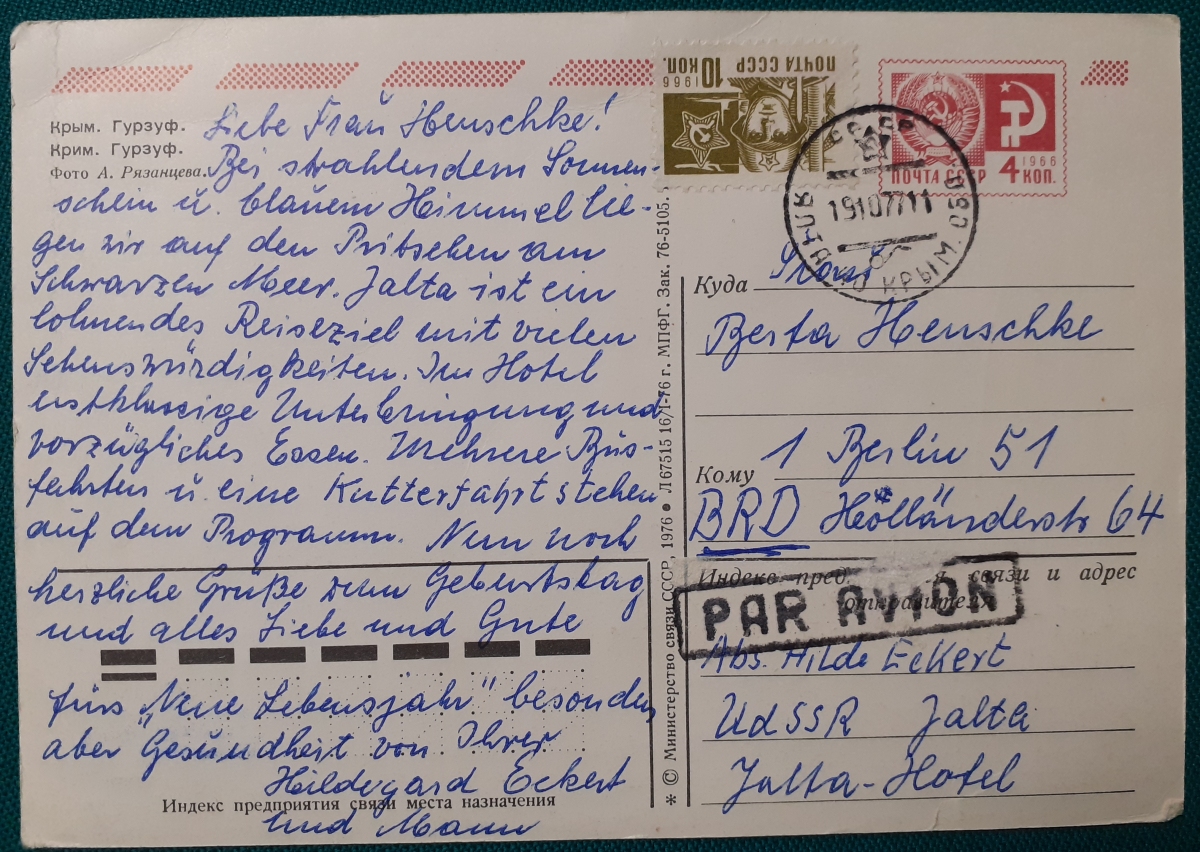 Крым. Гурзуф.
Крим. Гурзуф.
Фото А. Рязанцева.
Liebe Frau Henschke!
Bei strahlendem Sonnen-
schein u. blauem Himmel lie-
gen wir auf den Pritschen am
Schwarzen Meer. Jalta ist ein
lohnendes Reiseziel mit vielen
Sehenswürdigkeiten. Im Hotel
erstklassige Unterbringung und
vorzügliches Essen. Mehrere Bus-
fahrten u. eine Kutterfahrt stehen
auf dem Programm. Nun noch
herzliche Grüße zum Geburtstag
und alles Liebe und Gute
fürs "Neue Lebensjahr" besonders
aber Gesundheit von Ihrer
Hildegard Eckert
und Mann
Индекс предприятия связи места назначения
* © Министерство связи СССР, 1976 ● Л 67515 16/I-76 г. МПФГ. Зак. 76-5105.
ПОЧТА СССР
10 КОП.
1966
ПОЧТА СССР
1966
4 КОП.
СССР
ЯЛТА
КРЫМ. ОБЛ
19107711
Куда
Berta Henschke
Кому 1 Berlin 51
BRD Holländerstr 64
Индекс пред связи и адрес
отправителя
PAR AVION
Abs. Hilde Eckert
UdSSR Jalta
Jalta-Hotel